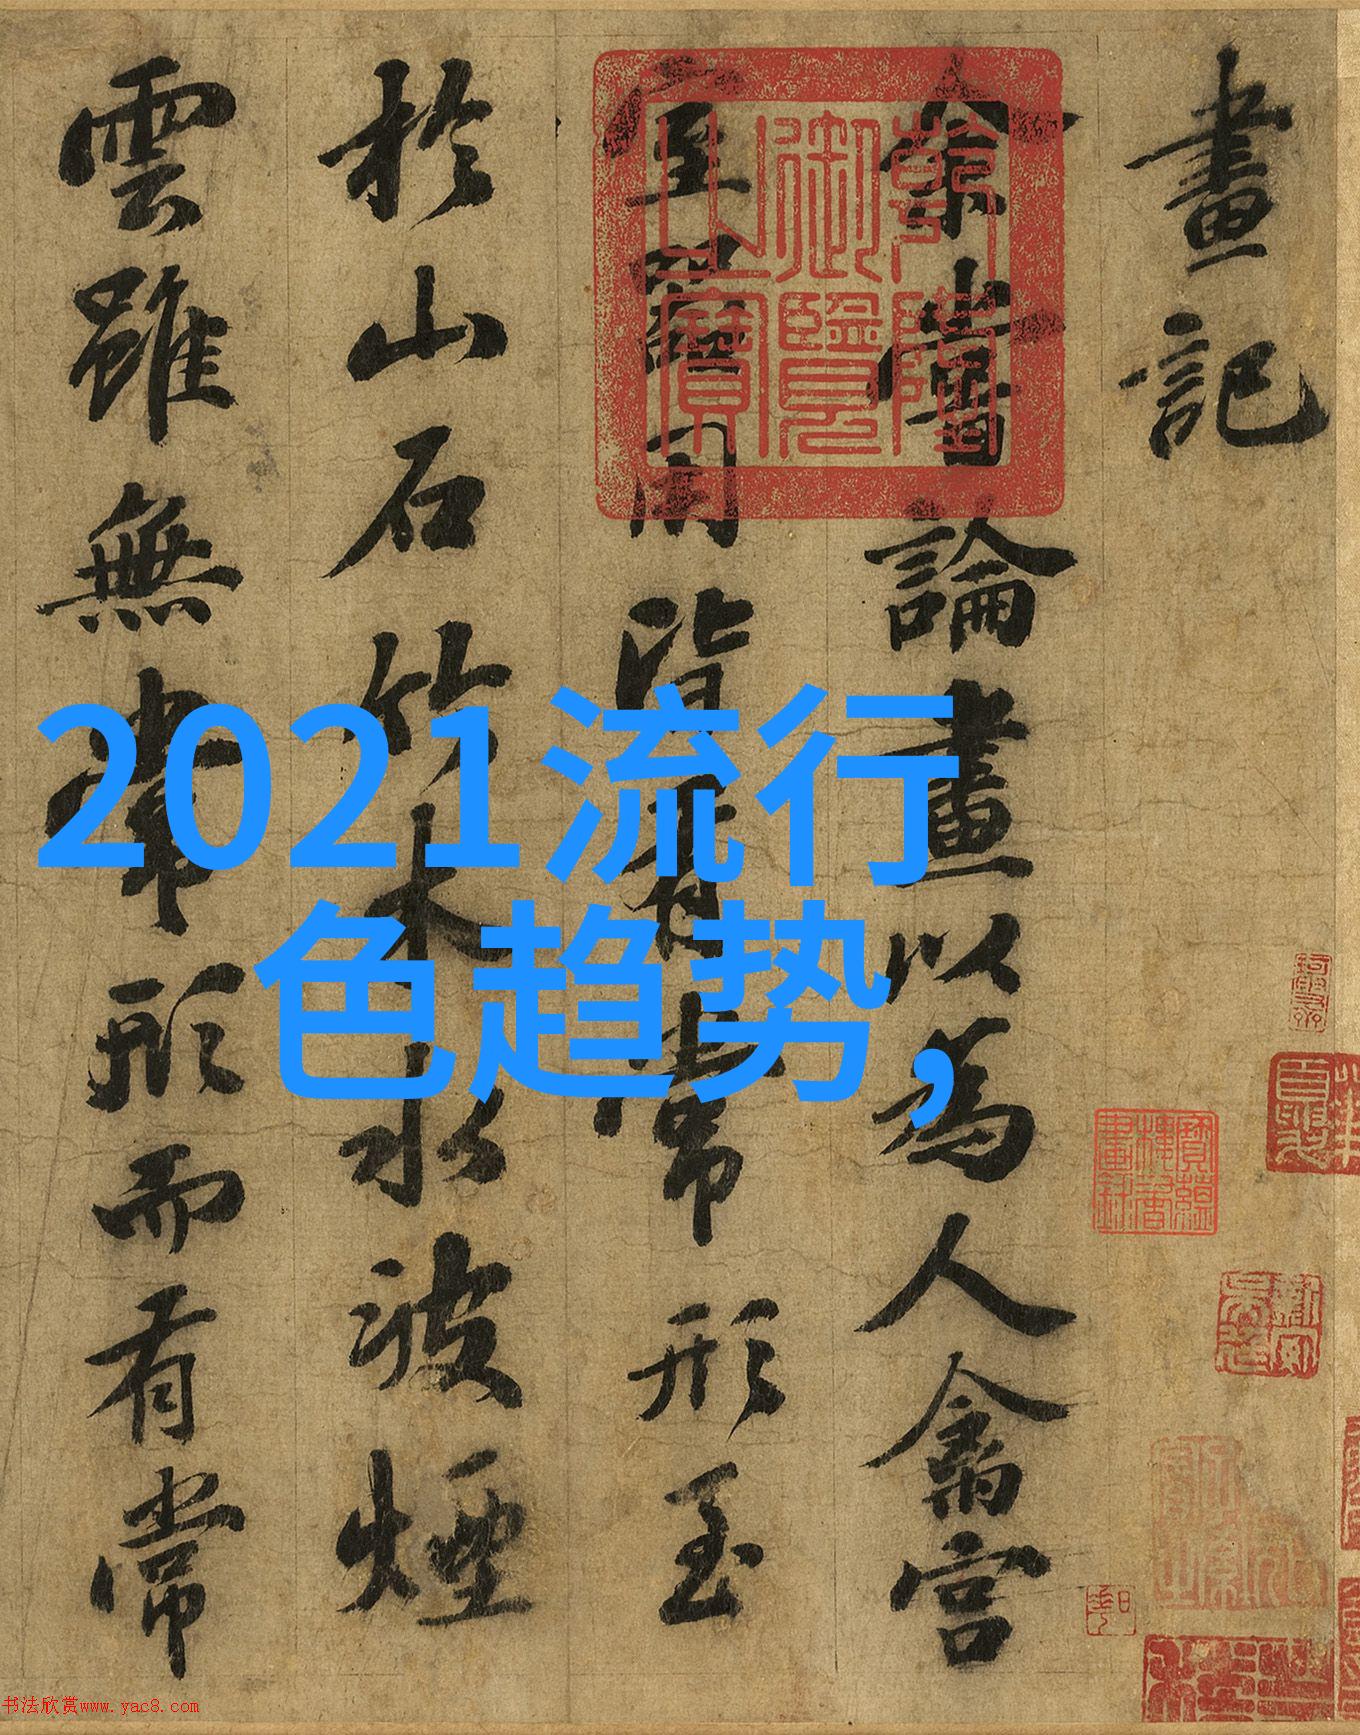 畫記
余嘗論畫以為人禽宮
室器用皆有常形至
於山石竹木水波煙
雲雖無常形而有常
乾隆
御覽
之寶
2021流行
色趋势,
书法欣赏www.yac8.com